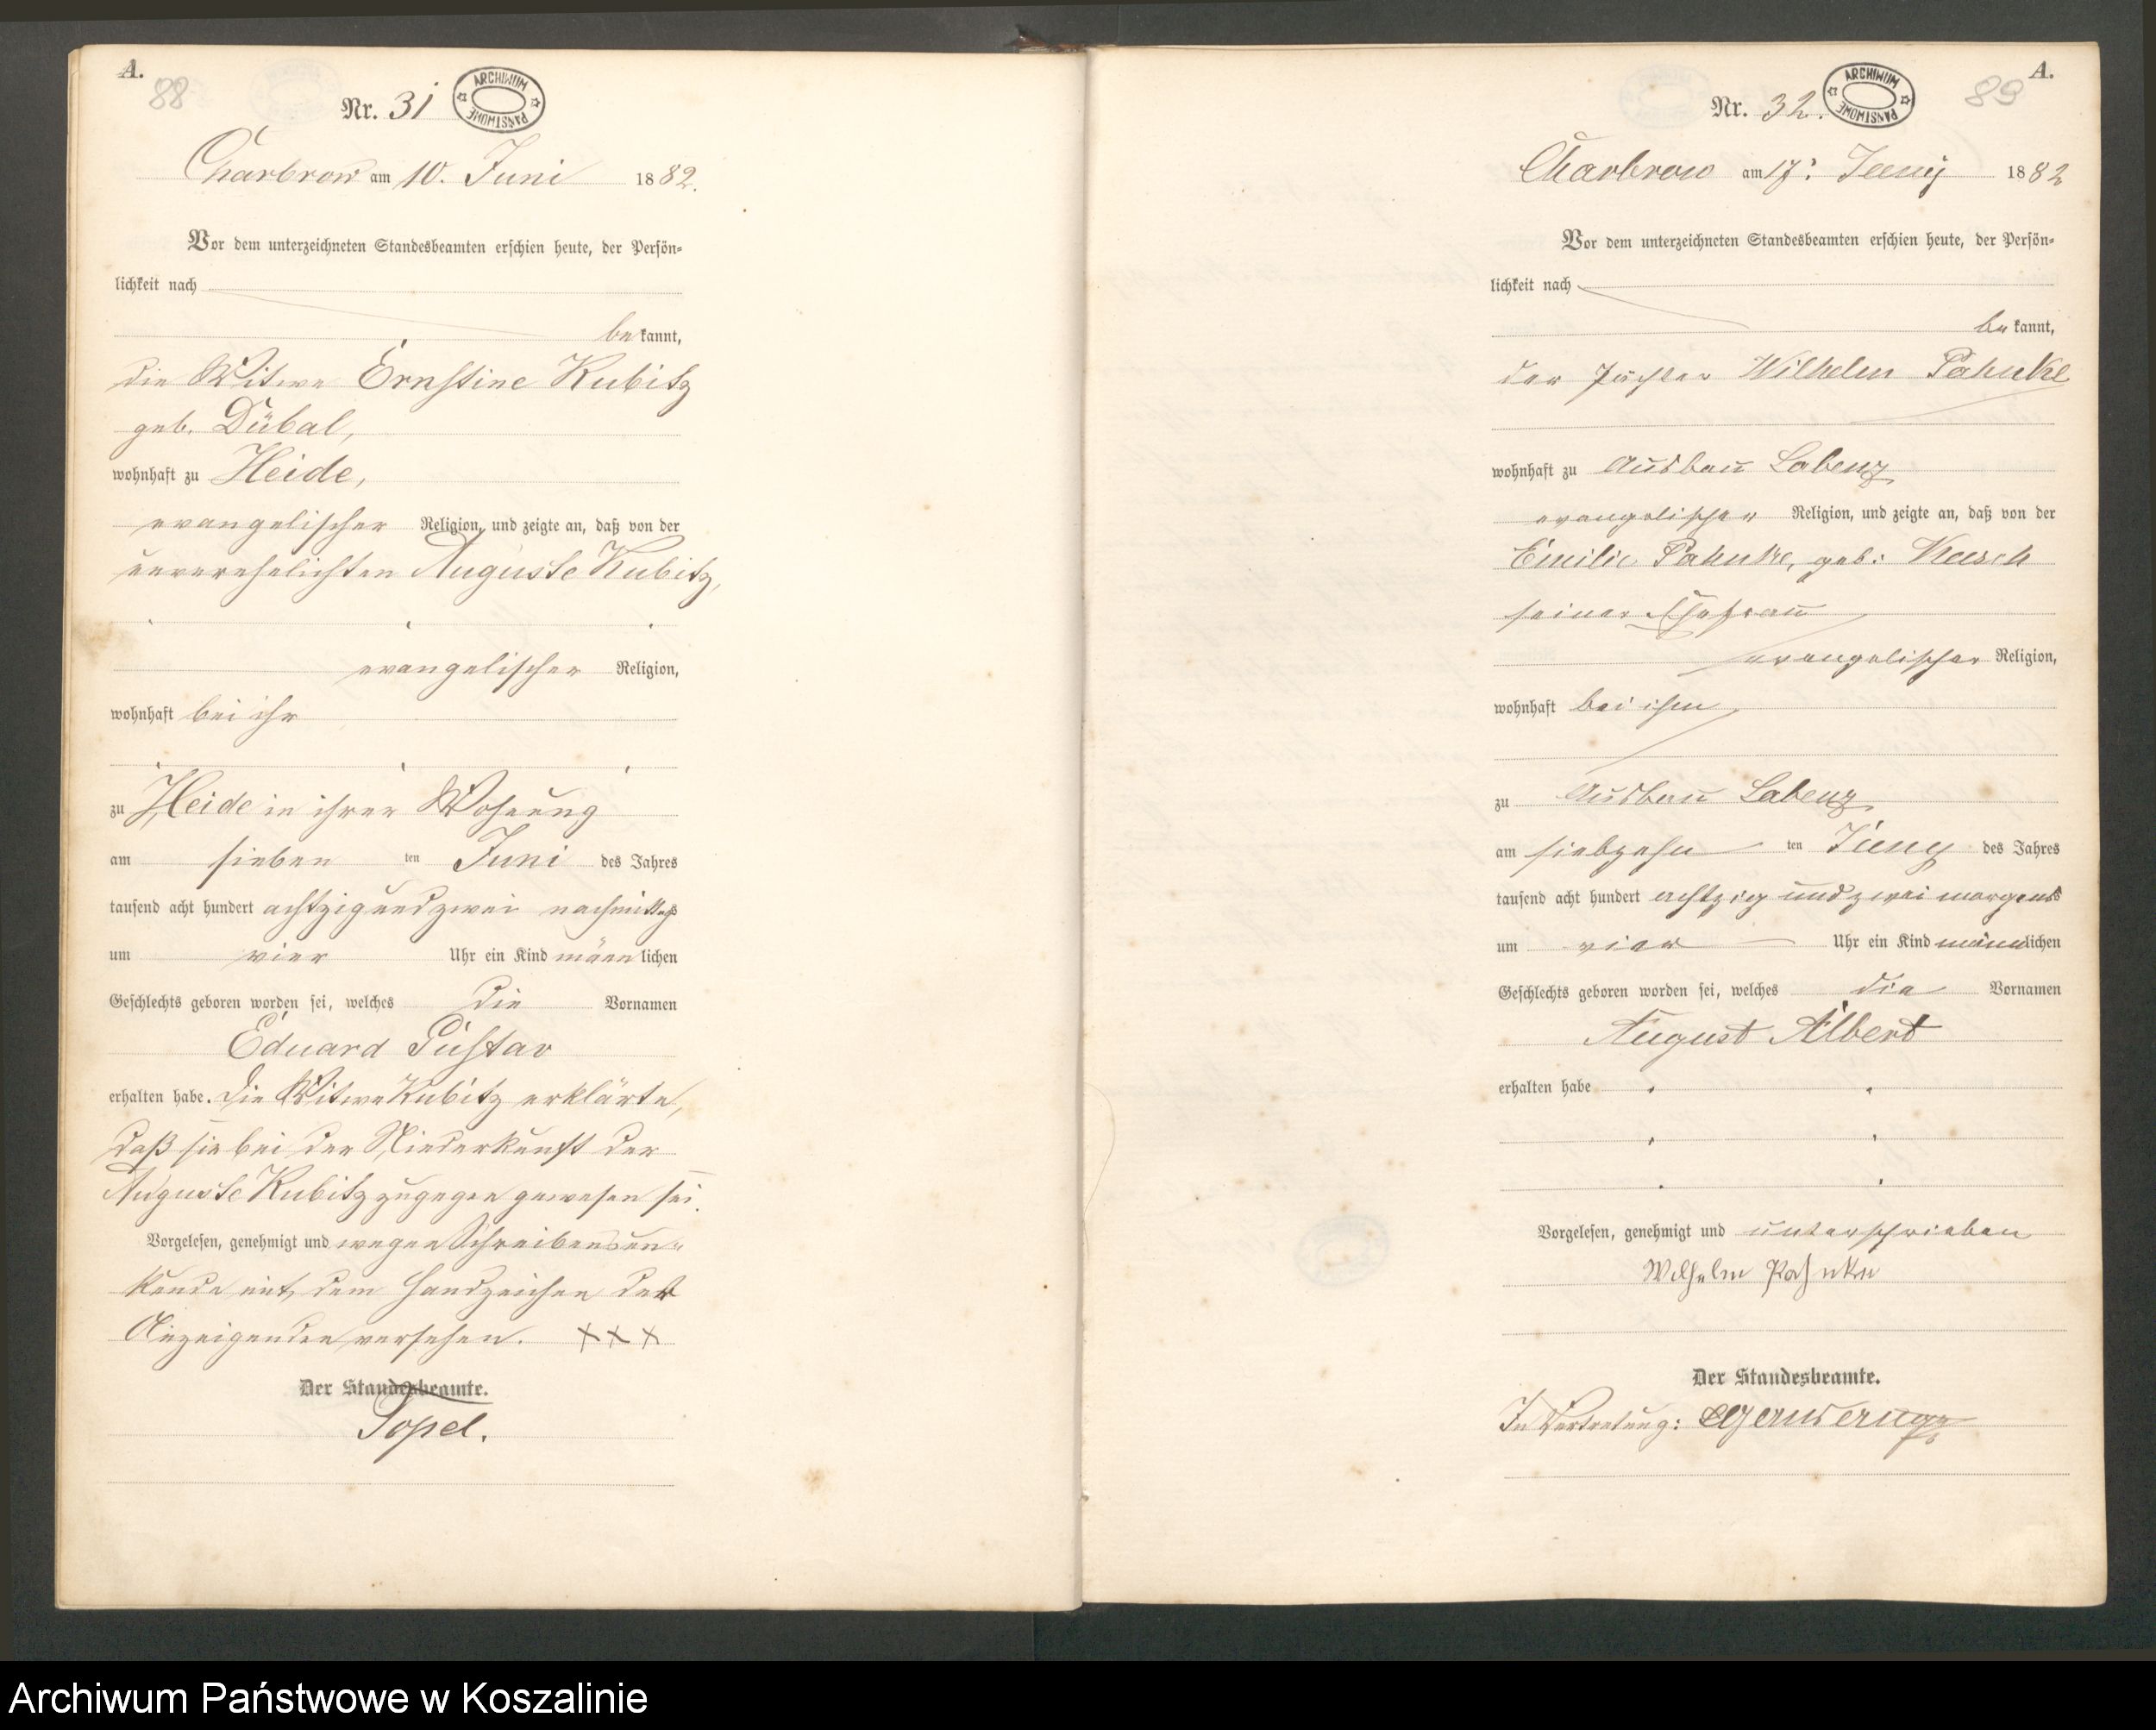 A.
88
Nr. 31
ARCHIWUM PAŃSTWOWE
Charbrow am 10. Juni 1882.
Vor dem unterzeichneten Standesbeamten erschien heute, der Persön-
lichkeit nach
bekannt,
die Witwe Ernstine Kubitz
geb. Dübal,
wohnhaft zu Heide,
evangelischer Religion, und zeigte an, daß von der
unverehelichten Auguste Kubitz,
evangelischer Religion,
wohnhaft bei ihr
zu Heide in ihrer Wohnung
am sieben ten Juni des Jahres
tausend acht hundert achtzigundzwei nachmittags
um vier Uhr ein Kind männlichen
Geschlechts geboren worden sei, welches die Vornamen
Eduard Gustav
erhalten habe. Die Witwe Kubitz erklärte,
daß sie bei der Niederkunft der
Auguste Kubitz zugegen gewesen sei.
Vorgelesen, genehmigt und wegen Schreibensun-
kunde mit dem Handzeichen der
Anzeigenden versehen. XXX
Der Standesbeamte.
Topel.
A.
89
Nr. 32.
ARCHIWUM PAŃSTWOWE
Charbrow am 17: Juny 1882
Vor dem unterzeichneten Standesbeamten erschien heute, der Persön-
lichkeit nach
bekannt,
der Pächter Wilhelm Pahnke
wohnhaft zu Ausbau Labenz
evangelischer Religion, und zeigte an, daß von der
Emilie Pahnke, geb:
seiner Ehefrau
evangelischer Religion,
wohnhaft bei ihm,
zu Ausbau Labenz
am siebzehn ten Juny des Jahres
tausend acht hundert achtzig und zwei morgens
um vier Uhr ein Kind männlichen
Geschlechts geboren worden sei, welches die Vornamen
August Albert
erhalten habe
Vorgelesen, genehmigt und unterschrieben
Wilhelm Pahnke
Der Standesbeamte.
In Vertretung:
Archiwum Państwowe w Koszalinie